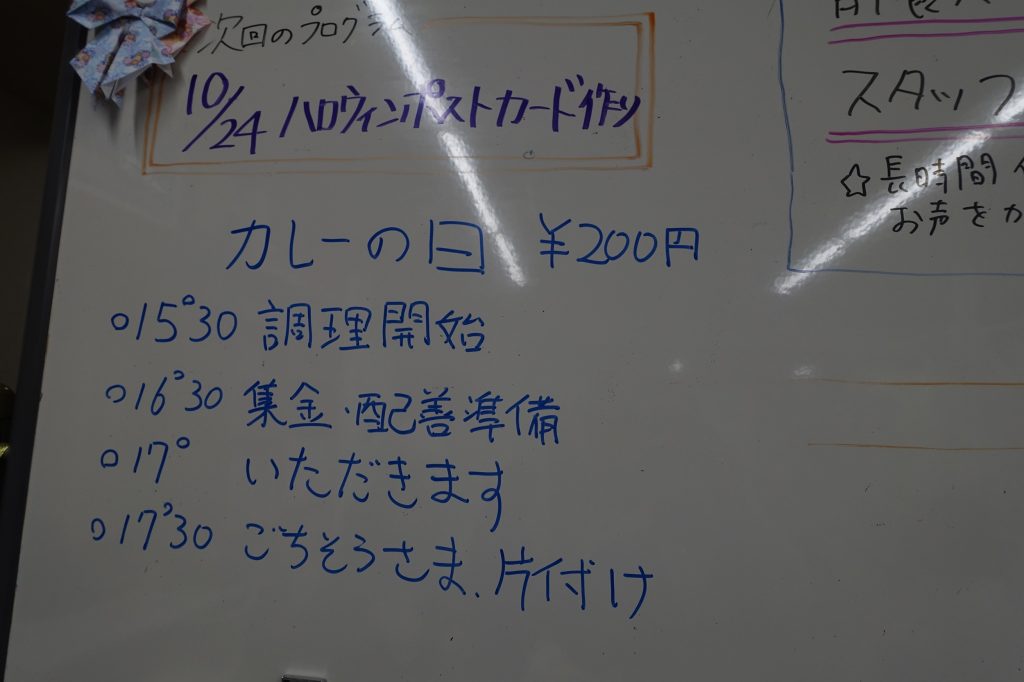 次回のプログラム
10/24 ハロウィンポストカード作り
カレーの日 ¥200円
○15°30 調理開始
○16°30 集金・配善準備
○17° いただきます
○17°30 ごちそうさま、片付け
スタッフ
☆長時間
お声をか